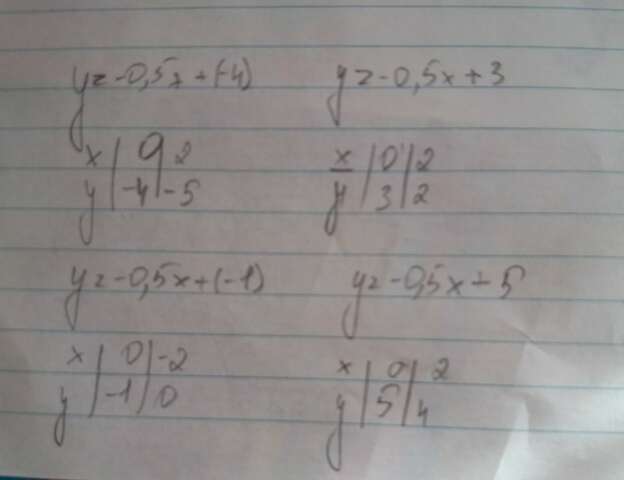 y=-0,5x+(-4) y=-0,5x+3
x | 0 | 2 x | 0 | 2
y | -4 | -5 y | 3 | 2
y=-0,5x+(-1) y=-0,5x+5
x | 0 | -2 x | 0 | 2
y | -1 | 0 y | 5 | 4